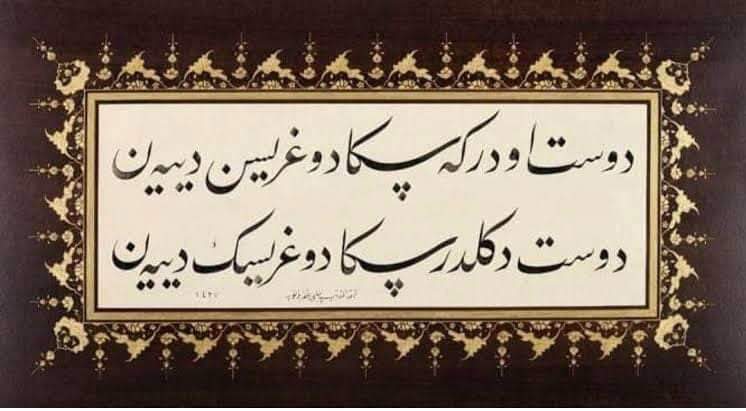 دوست اودر كه سكا دوغریسن دییه‌ن
دوست دكلدر سكا دوغریسك دییه‌ن
١٤٢٧